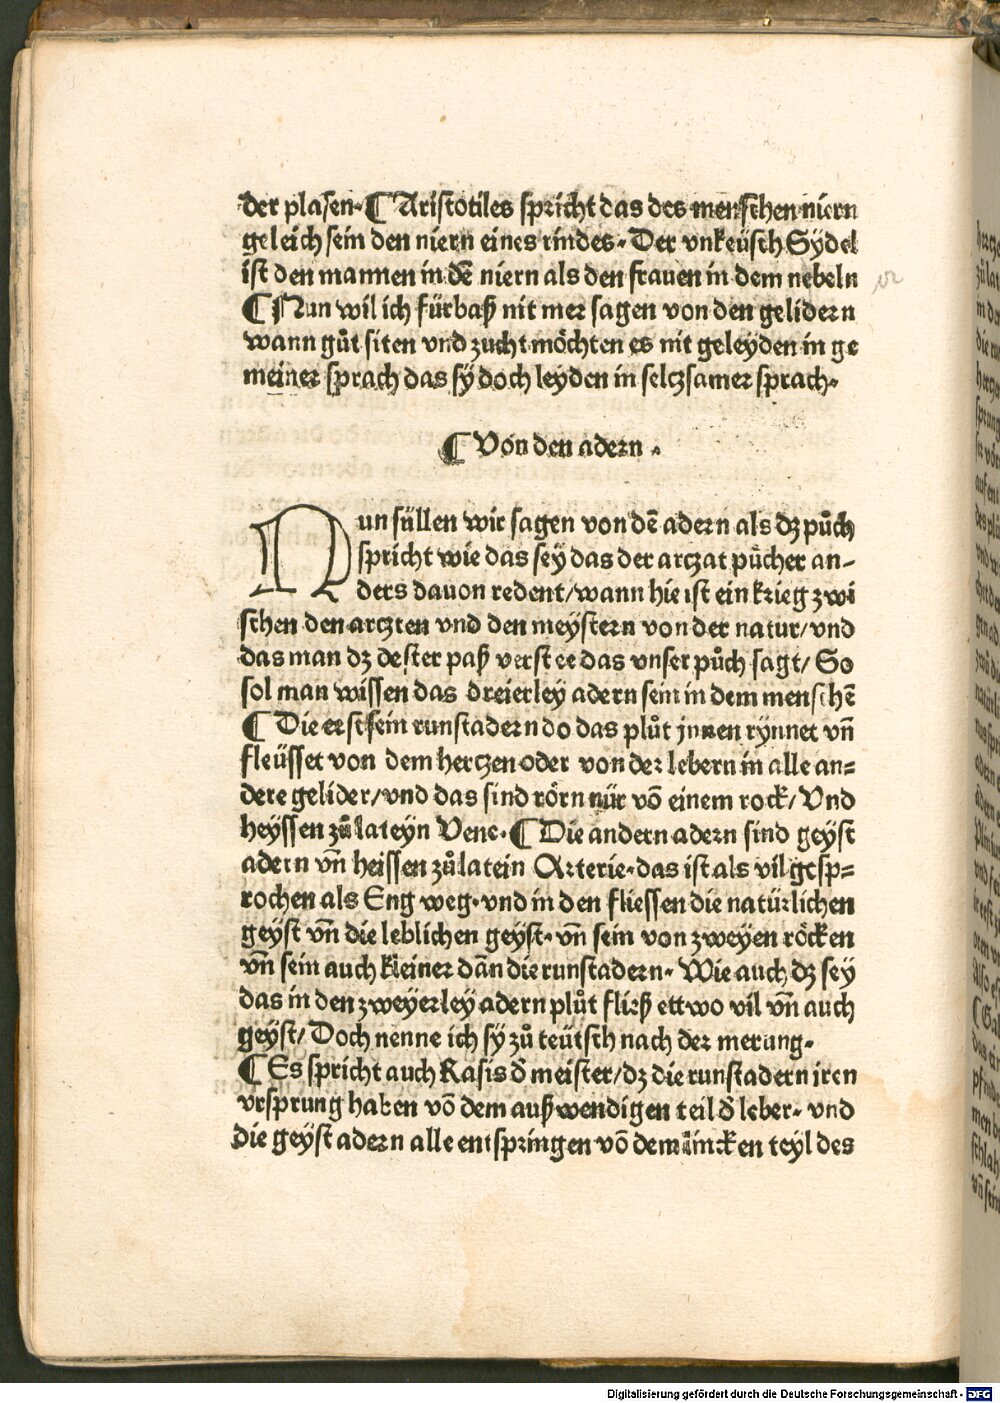 der plasen. ¶ Aristotiles spricht das des menschen niern
geleich sein den niern eines rindes. Der vnkeüsch Sydel
ist den mannen in dē niern als den frauen in dem nebeln
¶ Nun wil ich fürbaß nit mer sagen von den gelidern
wann gůt siten vnd zucht möchten es nit geleyden in ge
meiner sprach das sÿ doch leyden in selczsamer sprach.
¶ Von den adern .
Nun süllen wir sagen von dē adern als dz půch
spricht wie das sey das der arczat pücher an-
ders dauon redent/ wann hie ist ein krieg zwi
schen den arczten vnd den meÿstern von der natur/ vnd
das man dz dester paß verstee das vnser půch sagt/ So
sol man wissen das dreierley adern sein in dem menschē
¶ Die erst sein runstadern do das plůt jnnen rÿnnet vn̄
fleüsset von dem herczen oder von der lebern in alle an=
dere gelider/ vnd das sind rörn nür vō einem rock/ Vnd
heÿssen zů lateyn Vene. ¶ Die andern adern sind geÿst
adern vn̄ heissen zů latein Arterie. das ist als vil gesp=
rochen als Eng weg. vnd in den fliessen die natürlichen
geÿst vn̄ die leblichen geÿst. vn̄ sein von zweÿen röcken
vn̄ sein auch kleiner dān die runstadern. Wie auch dz seÿ
das in den zweÿerleÿ adern plůt fliesß ettwo vil vn̄ auch
geÿst/ Doch nenne ich sÿ zů teütsch nach der merung.
¶ Es spricht auch Rasis d̄ meister/ dz die runstadern iren
vrsprung haben vō dem außwendigen teil d̄ leber. vnd
die geÿst adern alle entspringen vō dem lincken teÿl des
Digitalisierung gefördert durch die Deutsche Forschungsgemeinschaft - DFG